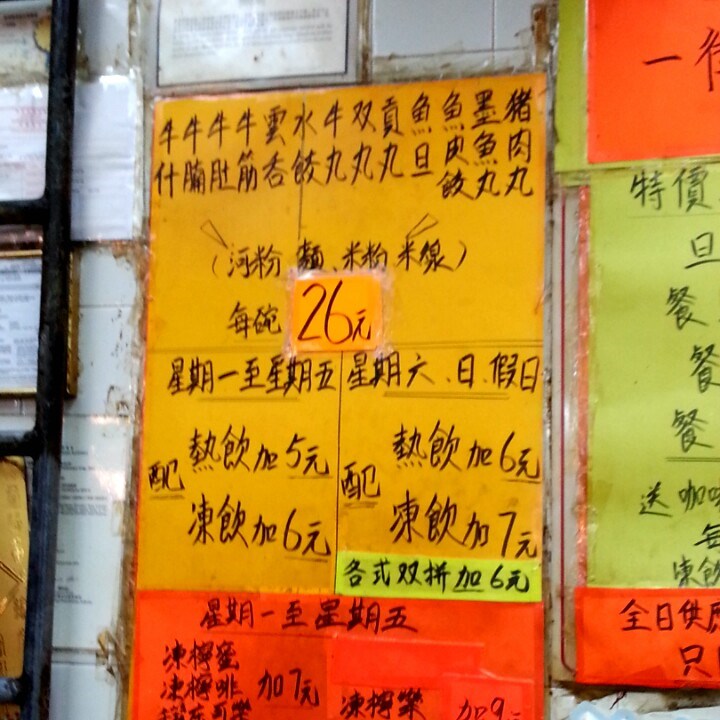 牛什
牛腩
牛肚
牛筋
雲吞
水餃
牛丸
双丸
貢丸
魚旦
魚皮餃
墨魚丸
豬肉丸
（河粉 麵、米粉 米線）
每碗 26元
星期一至星期五
配
熱飲加5元
凍飲加6元
星期六、日、假日
配
熱飲加6元
凍飲加7元
各式双拼加6元
星期一至星期五
凍檸蜜
凍檸啡 加7元
凍檸樂 加9
一
特價
旦
餐
餐
餐
送咖
凍飲
全日供
只